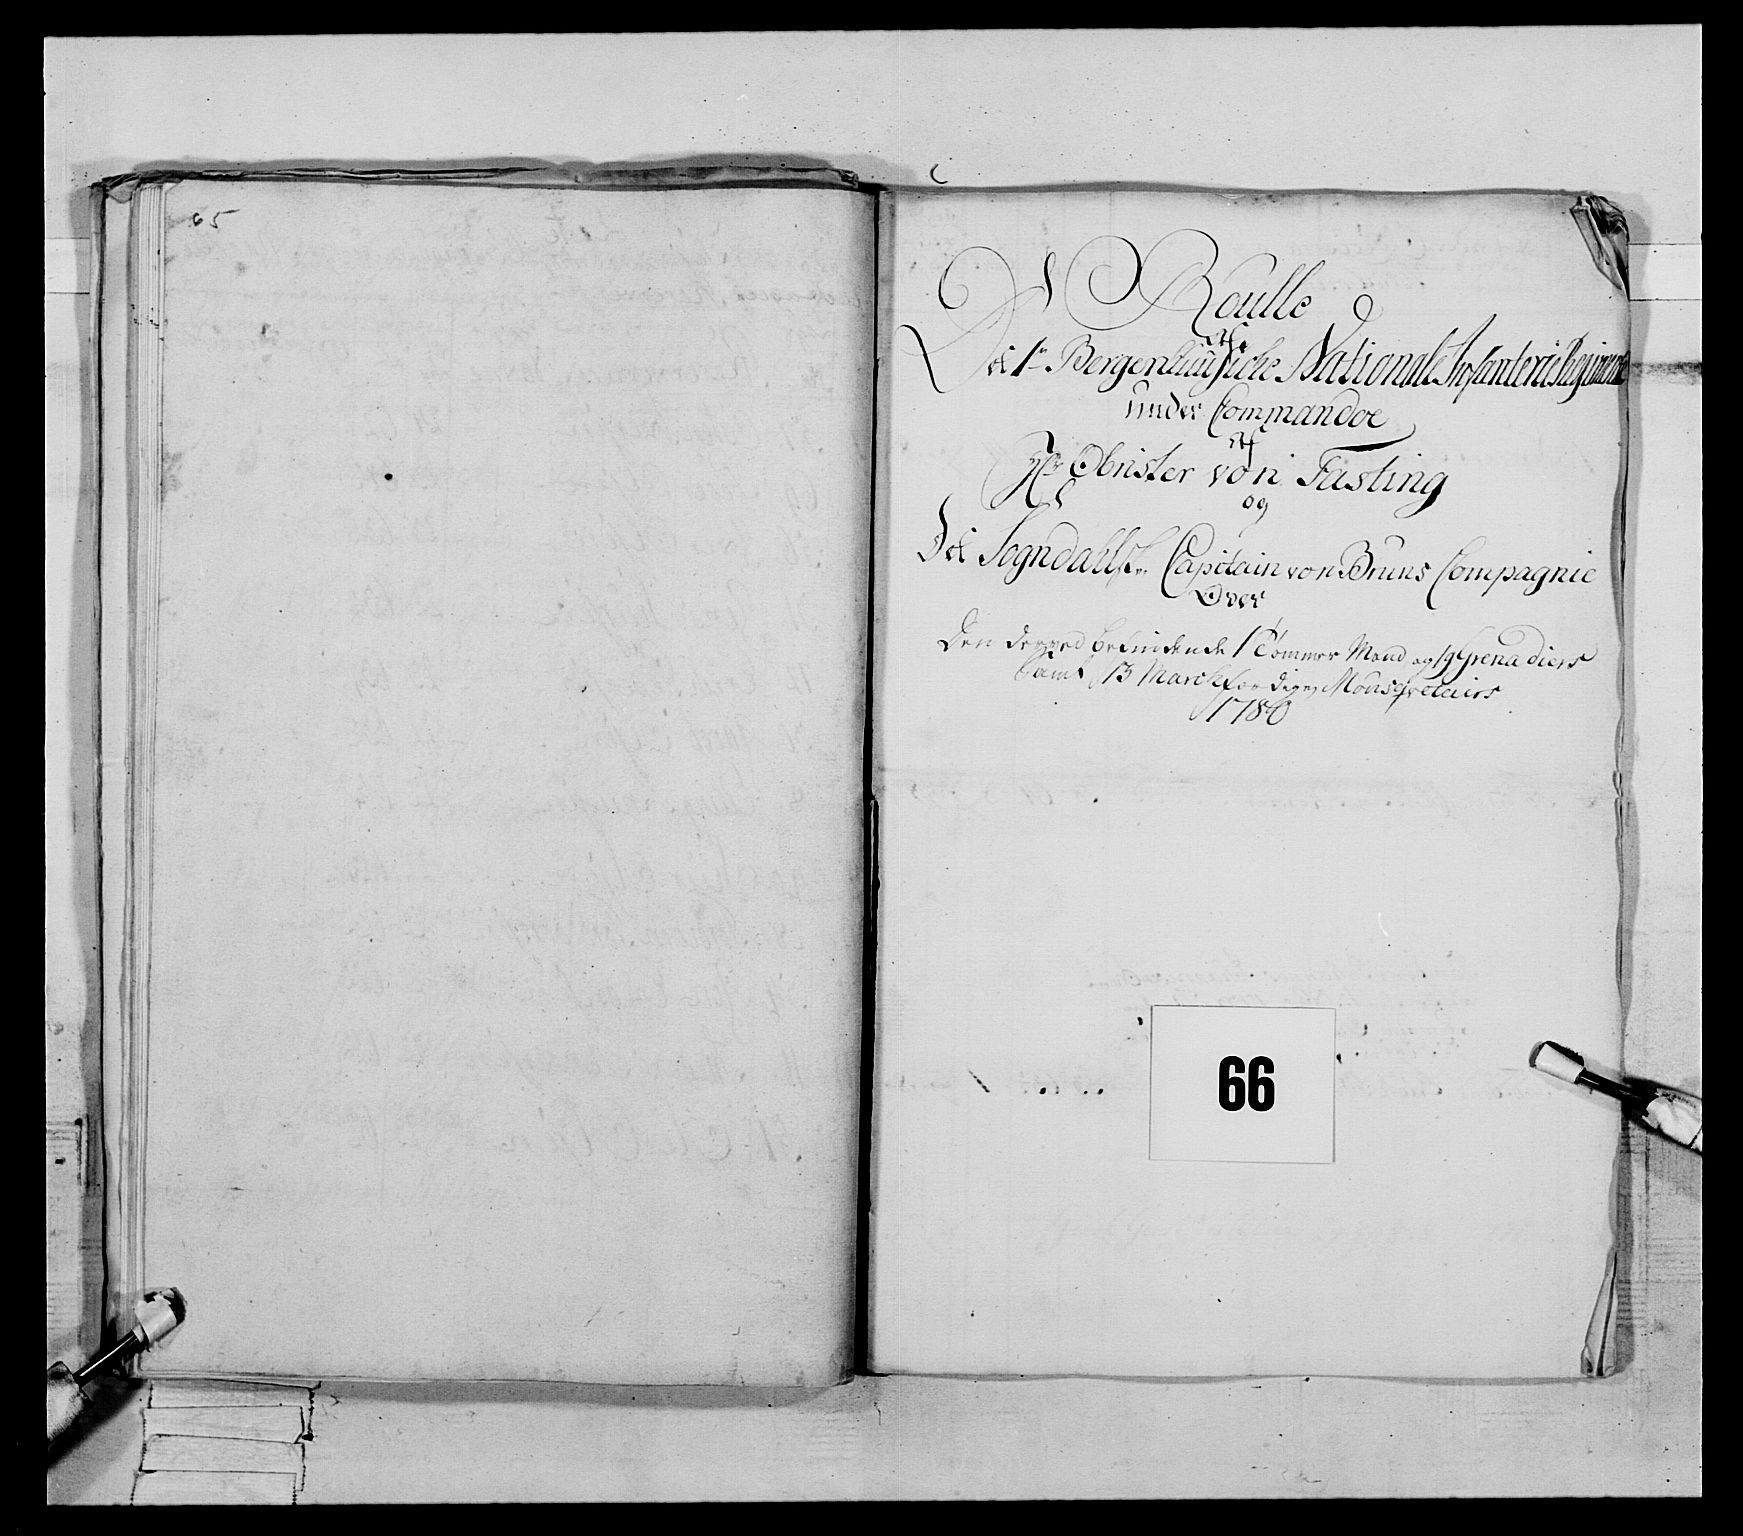 65
Roulle
Af
Det 1te Bergenhuusiche Nationale Infanterie Regiment
under Commandoe
Af
Hr Obrister von Fasting
og
Det Sogndalsche Capitain von Bruns Compagnie
Over
Den derved befindende 1 Tömmer Mand og 19 Grenadiers
Samt 13 Marckfærdige Mousqvetairs
1780
66